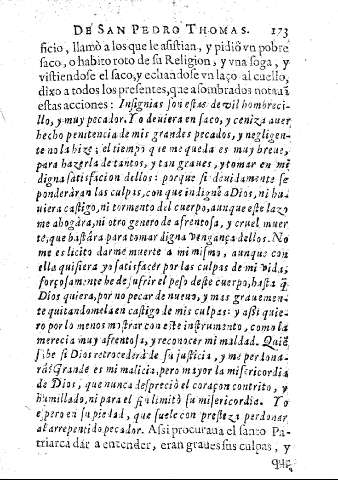 DE SAN PEDRO THOMAS. 173
ficio, llamò a los que le asistian, y pidiò vn pobre
saco, o habito roto de su Religion, y vna soga, y
vistiendose el saco, y echandose vn laço al cuello,
dixo a todos los presentes, que asombrados notauã
estas acciones: Insignias son estas de vil hombreci-
llo, y muy pecador. Yo deuiera en saco, y ceniza auer
hecho penitencia de mis grandes pecados, y negligen-
te no la hize; el tiempo que me queda es muy breue,
para hazerla de tantos, y tan graues, y tomar en mi
digna satisfacion dellos: porque si deuidamente se
ponderàran las culpas, con que indignè a Dios, ni ha-
uiera castigo, ni tormento del cuerpo, aunque este lazo
me ahogàra, ni otro genero de afrentosa, y cruel muer
te, que bastàra para tomar digna vengança dellos. No
me es licito darme muerte a mi mismo, aunque con
ella quisiera yo satisfacèr por las culpas de mi vida;
forçosamente he de sufrir el peso deste cuerpo, hasta q̃
Dios quiera, por no pecar de nueuo, y mas grauemen-
te quitandomela en castigo de mis culpas: y assi quie-
ro por lo menos mostrar con este instrumento, como la
merecia muy afrentosa, y reconocer mi maldad. Quiẽ
sabe si Dios retrocederà de su justicia, y me perdona-
rà? Grande es mi malicia, pero mayor la misericordia
de Dios, que nunca despreciò el coraçon contrito, y
humillado, ni para el fin limitò su misericordia. Yo
espero en su piedad, que suele con presteza perdonar
al arrepentido pecador. Assi procuraua el santo Pa-
triarca dar a entender, eran graues sus culpas, y
que